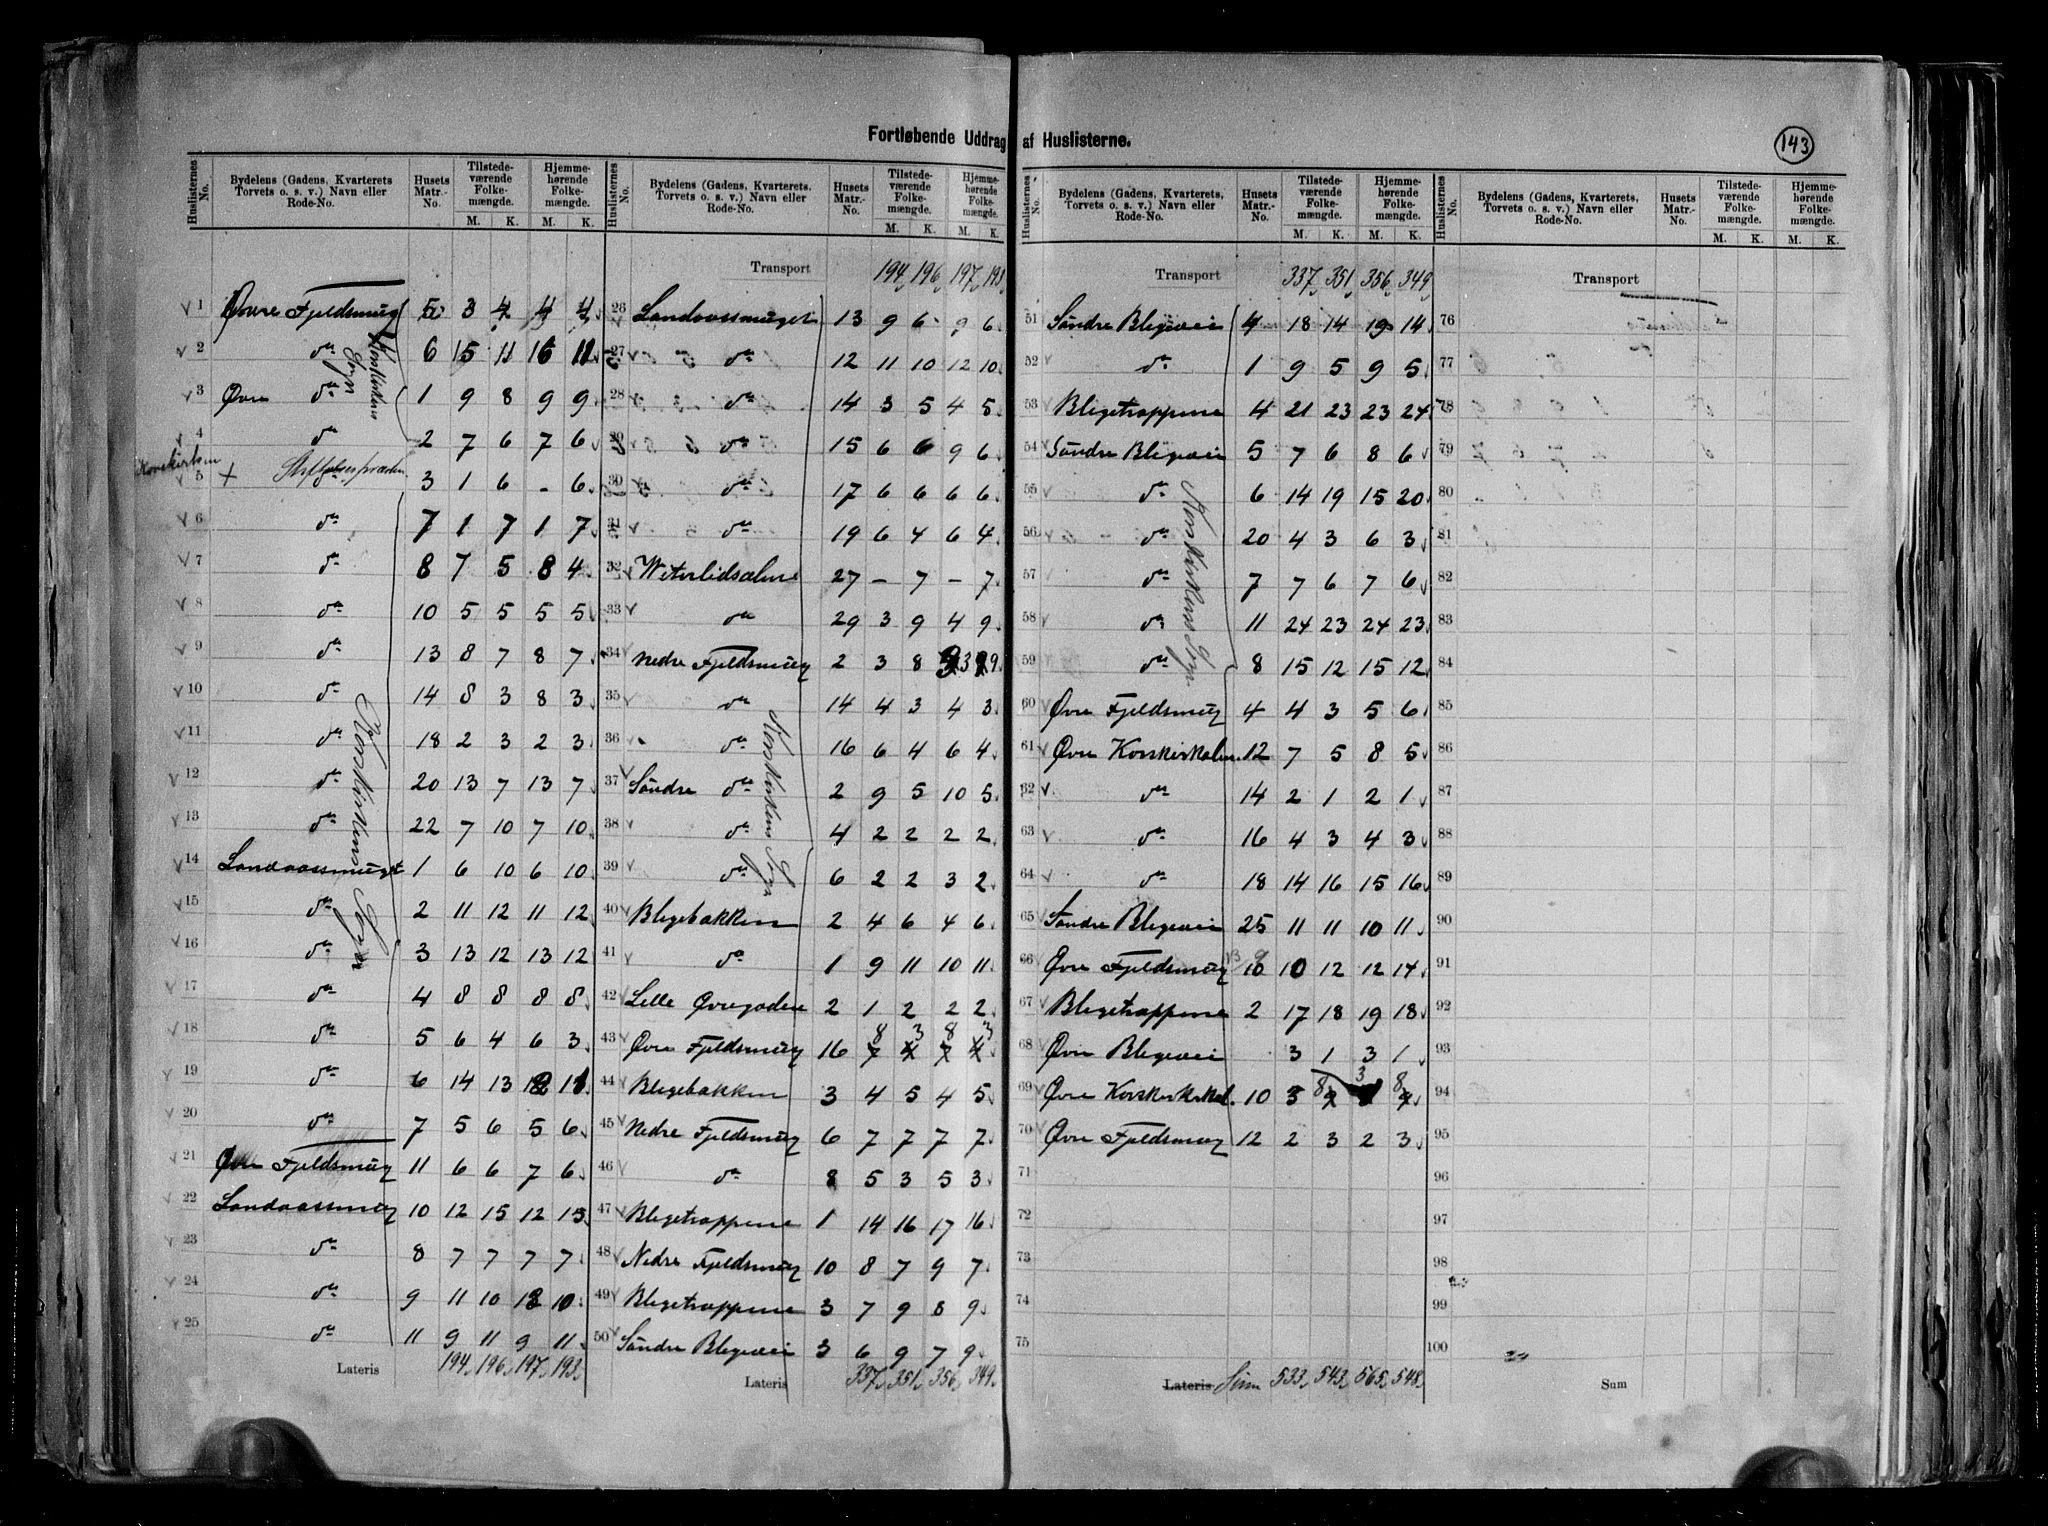 Fortløbende Uddrag af Huslisterne.
143
Huslisternes No. Bydelens (Gadens, Kvarterets Torvets o. s. v.) Navn eller Rode-No. Husets Matr.-No. Tilstedeværende Folkemængde. M. K. Hjemmehørende Folkemængde. M. K.
1 Øvre Fjeldsmug 5 3 4 4 4
2 do 6 15 11 16 11
3 Øvre do 1 9 8 9 9
4 do 2 7 6 7 6
Korskirkens Sogn
5 + 3 1 6 - 6
6 do 7 1 7 1 7
7 do 8 7 5 8 4
8 do 10 5 5 5 5
9 do 13 8 7 8 7
10 do 14 8 3 8 3
11 do 18 2 3 2 3
12 do 20 13 7 13 7
13 do 22 7 10 7 10
14 Landaassmuget 1 6 10 6 10
15 do 2 11 12 11 12
16 do 3 13 12 13 12
17 do 4 8 8 8 8
18 do 5 6 4 6 3
19 do 6 14 13 12 11
20 do 7 5 6 5 6
21 Øvre Fjeldsmug 11 6 6 7 6
22 Landaassmug 10 12 15 12 15
23 do 8 7 7 7 7
24 do 9 11 10 12 10
25 do 11 9 11 9 11
Korskirkens Sogn
Lateris 194 196 197 193
Huslisternes No. Bydelens (Gadens, Kvarterets, Torvets o. s. v.) Navn eller Rode-No. Husets Matr.-No. Tilstedeværende Folkemængde. M. K. Hjemmehørende Folkemængde. M. K.
Transport 194 196 197 193
26 Landaassmuget 13 9 6 9 6
27 do 12 11 10 12 10
28 do 14 3 5 4 5
29 do 15 6 6 9 6
30 do 17 6 6 6 6
31 do 19 6 4 6 4
32 27 - 7 - 7
33 do 29 3 9 4 9
34 Nedre Fjeldsmug 2 3 8 3 9
35 do 14 4 3 4 3
36 do 16 6 4 6 4
37 Söndre do 2 9 5 10 5
38 do 4 2 2 2 2
39 do 6 2 2 3 2
40 Blegebakken 2 4 6 4 6
41 do 1 9 11 10 11
42 Lille Øvregaden 2 1 2 2 2
8 3 8 3
43 Øvre Fjeldsmug 16 7 4 7 4
44 Blegebakken 3 4 5 4 5
45 Nedre Fjeldsmug 6 7 7 7 7
46 do 8 5 3 5 3
47 Blegetrappene 1 14 16 17 16
48 Nedre Fjeldsmug 10 8 7 9 7
49 Blegetrappene 3 7 9 8 9
50 Søndre Blegevei 3 6 9 7 9
Korskirkens Sogn
Lateris 337 351 356 349
Huslisternes No. Bydelens (Gadens, Kvarterets, Torvets o. s. v.) Navn eller Rode-No. Husets Matr.-No. Tilstedeværende Folkemængde. M. K. Hjemmehørende Folkemængde. M. K.
Transport 337 351 356 349
51 Söndre Blegevei 4 18 14 19 14
52 do 1 9 5 9 5
53 Blegetrappene 4 21 23 23 24
54 Söndre Blegevei 5 7 6 8 6
55 do 6 14 19 15 20
56 do 20 4 3 6 3
57 do 7 7 6 7 6
58 do 11 24 23 24 23
59 do 8 15 12 15 12
60 Øvre Fjeldsmug 4 4 3 5 6
61 Øvre Korskirkealm. 12 7 5 8 5
62 do 14 2 1 2 1
63 do 16 4 3 4 3
64 do 18 14 16 15 16
65 Søndre Blegevei 25 11 11 10 11
66 Øvre Fjeldsmug 10 10 12 12 14
67 Blegetrappene 2 17 18 19 18
68 Øvre Blegevei 3 1 3 1
8 3 8
69 Øvre Korskirkeal. 10 3
70 Øvre Fjeldsmug 12 2 3 2 3
71
72
73
74
75
Korskirkens Sogn
Lateris Sum 533 543 565 548
Huslisternes No. Bydelens (Gadens, Kvarterets, Torvets o. s. v.) Navn eller Rode-No. Husets Matr.-No. Tilstedeværende Folkemængde. M. K. Hjemmehørende Folkemængde. M. K.
Transport
76
77
78
79
80
81
82
83
84
85
86
87
88
89
90
91
92
93
94
95
96
97
98
99
100
Sum